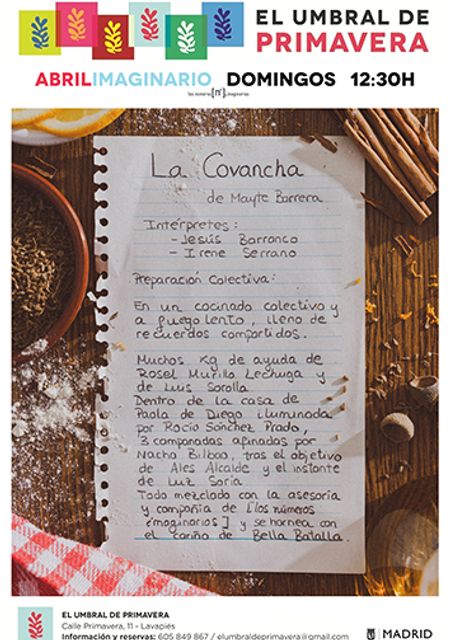 EL UMBRAL DE
PRIMAVERA
ABRILIMAGINARIO DOMINGOS 12:30H
los números [nº] imaginarios
La Covancha
de Mayte Barrera
Intérpretes:
- Jesús Barranco
- Irene Serrano
Preparación Colectiva:
En un cocinado colectivo y
a fuego lento, lleno de
recuerdos compartidos.
Muchos Kg de ayuda de
Rosel Murillo Lechuga y
de Luis Sorolla
Dentro de la casa de
Paola de Diego iluminada
por Rocío Sánchez Prado,
3 campanadas afinadas por
Nacho Bilbao, tras el objetivo
de Ales Alcalde y el instante
de Luz Soria
Todo mezclado con la asesoría
y compañía de [los números
imaginarios] y se hornea con
el cariño de Bella Batalla.
EL UMBRAL DE PRIMAVERA
Calle Primavera, 11 - Lavapiés
Información y reservas: 605 849 867 / elumbraldeprimavera@gmail.com
MADRID